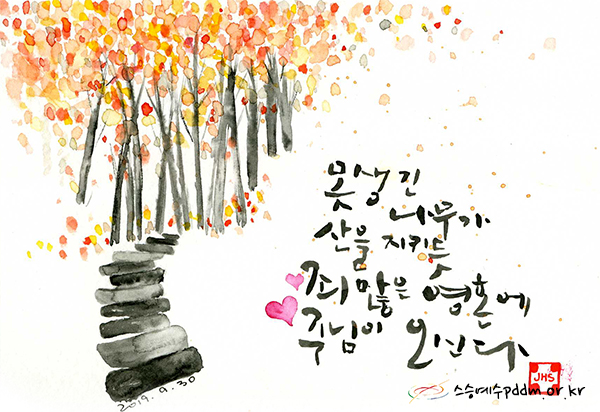 못생긴
나무가
산을 지키듯
죄 많은 영혼에
주님이 오신다
JHS
스승예수pddm.or.kr
2019.9.30